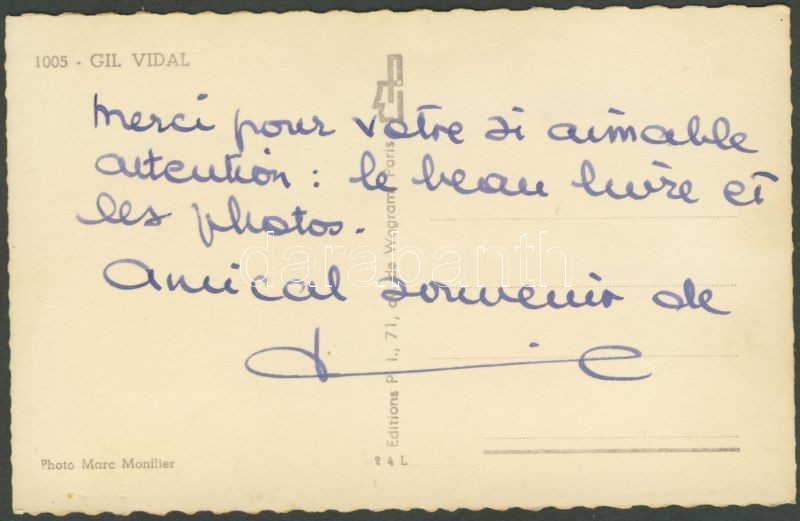 1005 - GIL VIDAL
Merci pour votre si aimable
attention : le beau livre et
les photos.
Amical souvenir de
Photo Marc Monflier
Editions P. I., 71, de Wagram, Paris
4 L
darabanth